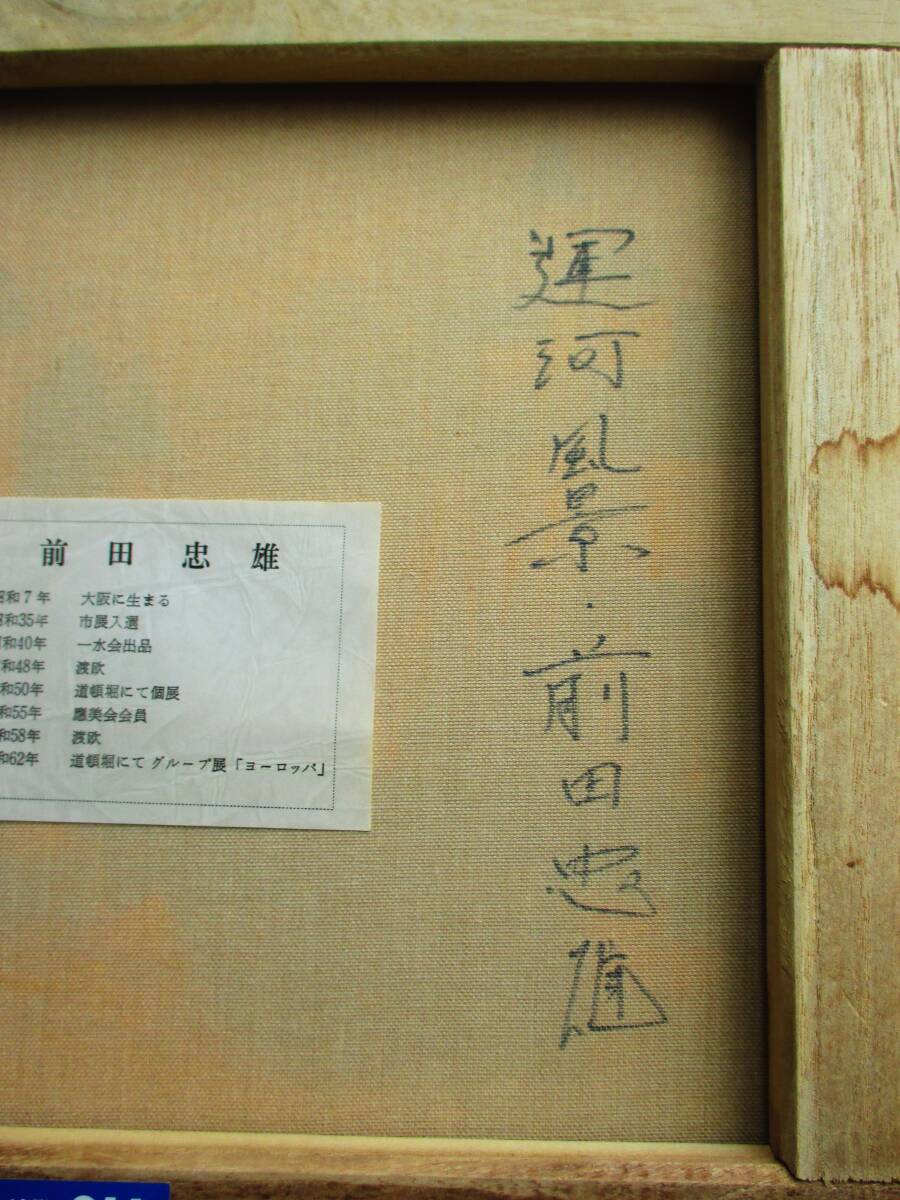 運河風景・前田忠雄
前田忠雄
昭和7年 大阪に生まる
昭和35年 市展入選
昭和40年 一水会出品
和48年 渡欧
和50年 道頓堀にて個展
和55年 應美会会員
和58年 渡欧
和62年 道頓堀にてグループ展「ヨーロッパ」